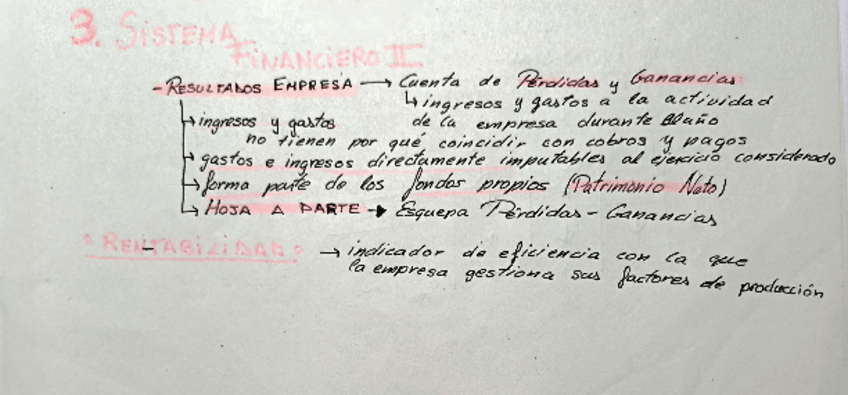 3. SISTEMA
FINANCIERO II
- RESULTADOS EMPRESA → Cuenta de Pérdidas y Ganancias
↳ ingresos y gastos a la actividad
de la empresa durante el año
→ ingresos y gastos
no tienen por qué coincidir con cobros y pagos
→ gastos e ingresos directamente imputables al ejercicio considerado
→ forma parte de los fondos propios (Patrimonio Neto)
↳ HOJA A PARTE → Esquepa Pérdidas - Ganancias
° RENTABILIDAD ° → indicador de eficiencia con la que
la empresa gestiona sus factores de producción